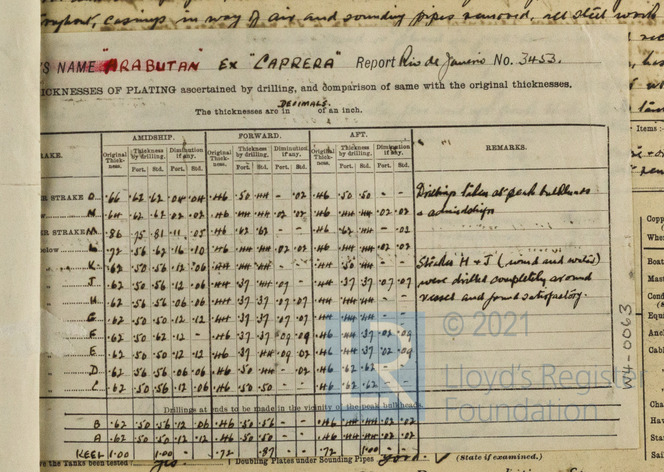 throughout, casings in way of air and sounding pipes removed, all steel work
'S NAME "ARABUTAN" EX "CAPRERA" Report Rio de Janeiro No. 3453.
ICKNESSES OF PLATING ascertained by drilling, and comparison of same with the original thicknesses.
The thicknesses are in DECIMALS of an inch.
AMIDSHIP. FORWARD. AFT.
RAKE. Original Thickness. Thickness by drilling. Diminution if any. Original Thickness. Thickness by drilling. Diminution if any. Original Thickness. Thickness by drilling. Diminution if any. REMARKS.
Port. Std. Port. Std. Port. Std. Port. Std. Port. Std. Port. Std.
ER STRAKE O .66 .62 .62 .04 .04 .46 .50 .44 - .02 .46 .50 .50 - - Drillings taken at peak bulkheads
N .64 .62 .62 .02 .02 .46 .44 .44 .02 .02 .46 .44 .44 .02 .02 & admidships
ER STRAKE M .86 .75 .81 .11 .05 .46 .62 .62 - - .46 .62 .44 - .02
elow L .72 .56 .62 .16 .10 .46 .44 .44 .02 .02 .46 .44 .44 .02 .02
K .62 .50 .56 .12 .06 .44 .44 .44 - - .44 .50 .44 - - Strakes H & J (wind and water)
J .62 .50 .56 .12 .06 .44 .37 .44 .07 - .44 .37 .37 .07 .07 were drilled completely around
H .62 .56 .56 .06 .06 .44 .37 .37 .07 .07 .44 .44 .44 - - vessel and found satisfactory.
G .62 .50 .50 .12 .12 .44 .37 .37 .07 .07 .44 .44 .44 - -
F .62 .50 .62 .12 - .46 .37 .37 .09 .09 .46 .44 .37 .02 .09
E .62 .50 .50 .12 .12 .46 .37 .44 .09 .02 .46 .44 .37 .02 .09
D .62 .56 .56 .06 .06 .46 .50 .44 - .02 .46 .62 .62 - -
C .62 .50 .56 .12 .06 .46 .50 .50 - - .46 .62 .62 - -
Drillings at ends to be made in the vicinity of the peak bulkheads.
B .62 .50 .56 .12 .06 .46 .50 .56 - - .46 .44 .44 .02 .02
A .62 .50 .50 .12 .12 .46 .50 .50 - - .46 .44 .44 .02 .02
KEEL 1.00 1.00 - .72 .87 - .72 1.00 -
ve the Tanks been tested yes Doubling Plates under Sounding Pipes good. (State if examined.)
© 2021
LR
Lloyd's Register
Foundation
W4-0063
Items:
Copp
Whe
Boat
Mast
Cond
Equi
Anc
Cabl
Cha
Hav
Sta
Sai